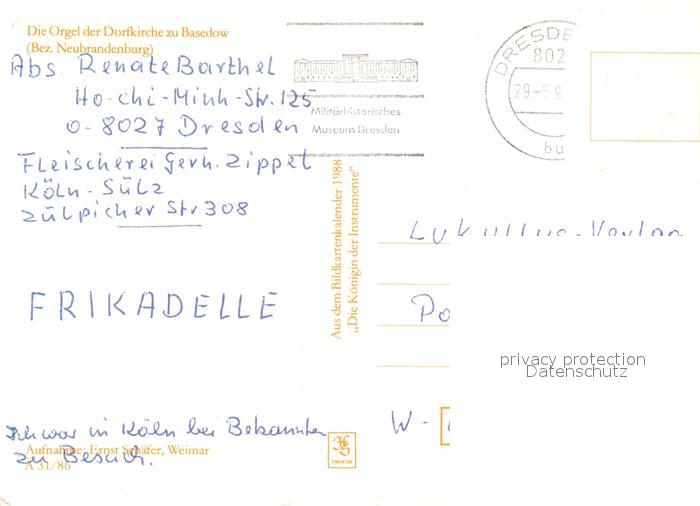 Die Orgel der Dorfkirche zu Basedow
(Bez. Neubrandenburg)
Abs. Renate Barthel
Ho-chi-Minh-Str. 125
O-8027 Dresden
Fleischerei Gerh. Zippel
Köln-Sülz
Zülpicher Str 308
FRIKADELLE
Ich war in Köln bei Bekannten
zu Besuch.
Aufnahme: Ernst Schäfer, Weimar
A 31/86
Aus dem Bildkartenkalender 1988
„Die Königin der Instrumente“
Militärhistorisches
Museum Dresden
DRESDE
802
29.-5.9
bu
Lukullus-Verlag
Po
W-
privacy protection
Datenschutz